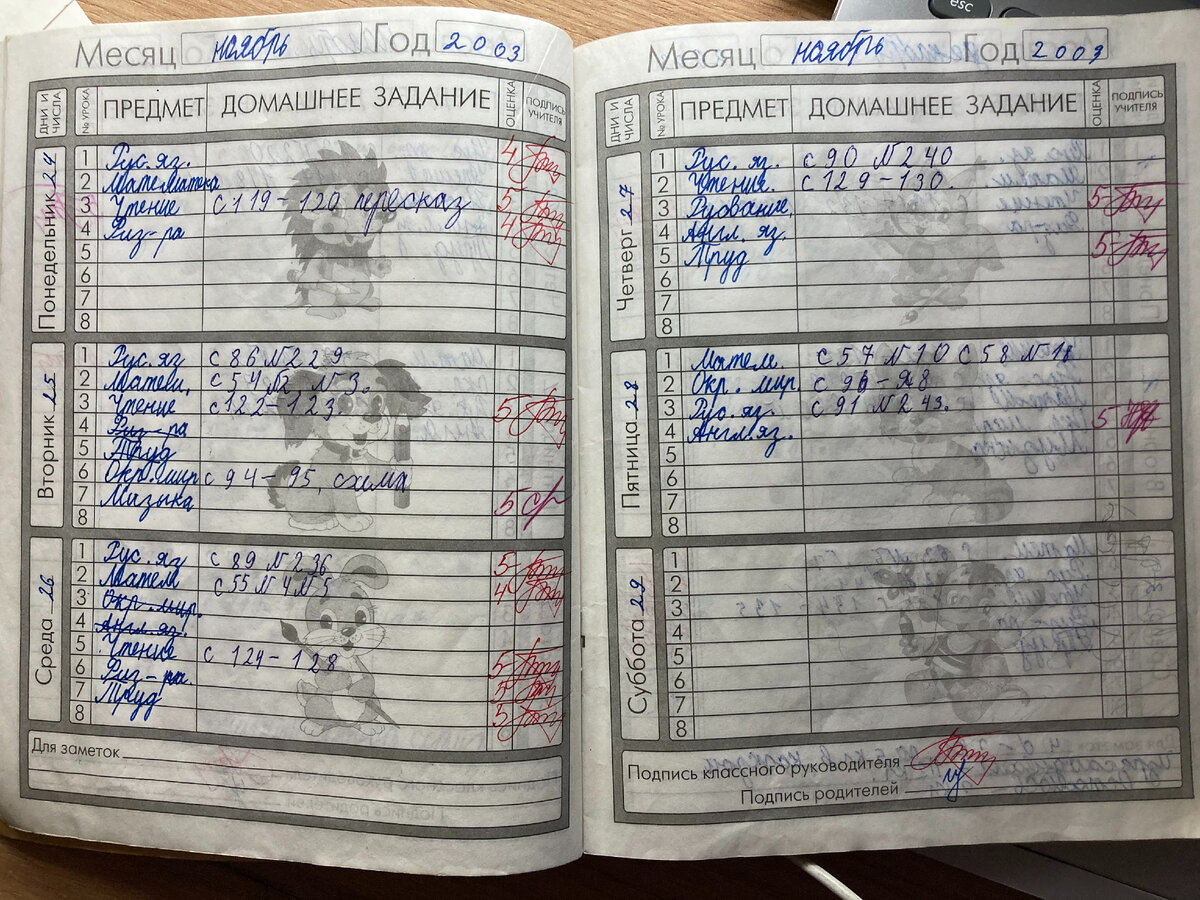 Месяц ноябрь Год 2003
ДНИ И ЧИСЛА № УРОКА ПРЕДМЕТ ДОМАШНЕЕ ЗАДАНИЕ ОЦЕНКА ПОДПИСЬ УЧИТЕЛЯ
Понедельник 24
1 Рус. яз. 4
2 Математека
3 Чтение с 119-120 пересказ 5
4 Физ-ра 4
5
6
7
8
Вторник 25
1 Рус. яз с 86 №229
2 Матем, с 54 №2 №3.
3 Чтение с 122-123 5
4 Физ-ра
5 Труд
6 Окр. мир с 94-95, схима
7 Музыка 5
8
Среда 26
1 Рус. яз с 89 №236 5
2 Матем с 55 №4 №5 4
3 Окр. мир.
4 Англ. яз.
5 Чтение с 124-128 5
6 Физ-ра. 5
7 Труд 5
8
Для заметок
Месяц ноябрь Год 2003
ДНИ И ЧИСЛА № УРОКА ПРЕДМЕТ ДОМАШНЕЕ ЗАДАНИЕ ОЦЕНКА ПОДПИСЬ УЧИТЕЛЯ
Четверг 27
1 Рус. яз. с 90 №240
2 Чтение. с 129-130.
3 Рисование, 5
4 Англ. яз.
5 Труд 5
6
7
8
Пятница 28
1 Матем. с 57 №10 с 58 №18
2 Окр. мир. с 96-98
3 Рус. яз. с 91 №243. 5
4 Англ. яз.
5
6
7
8
Суббота 29
1
2
3
4
5
6
7
8
Подпись классного руководителя
Подпись родителей
esc